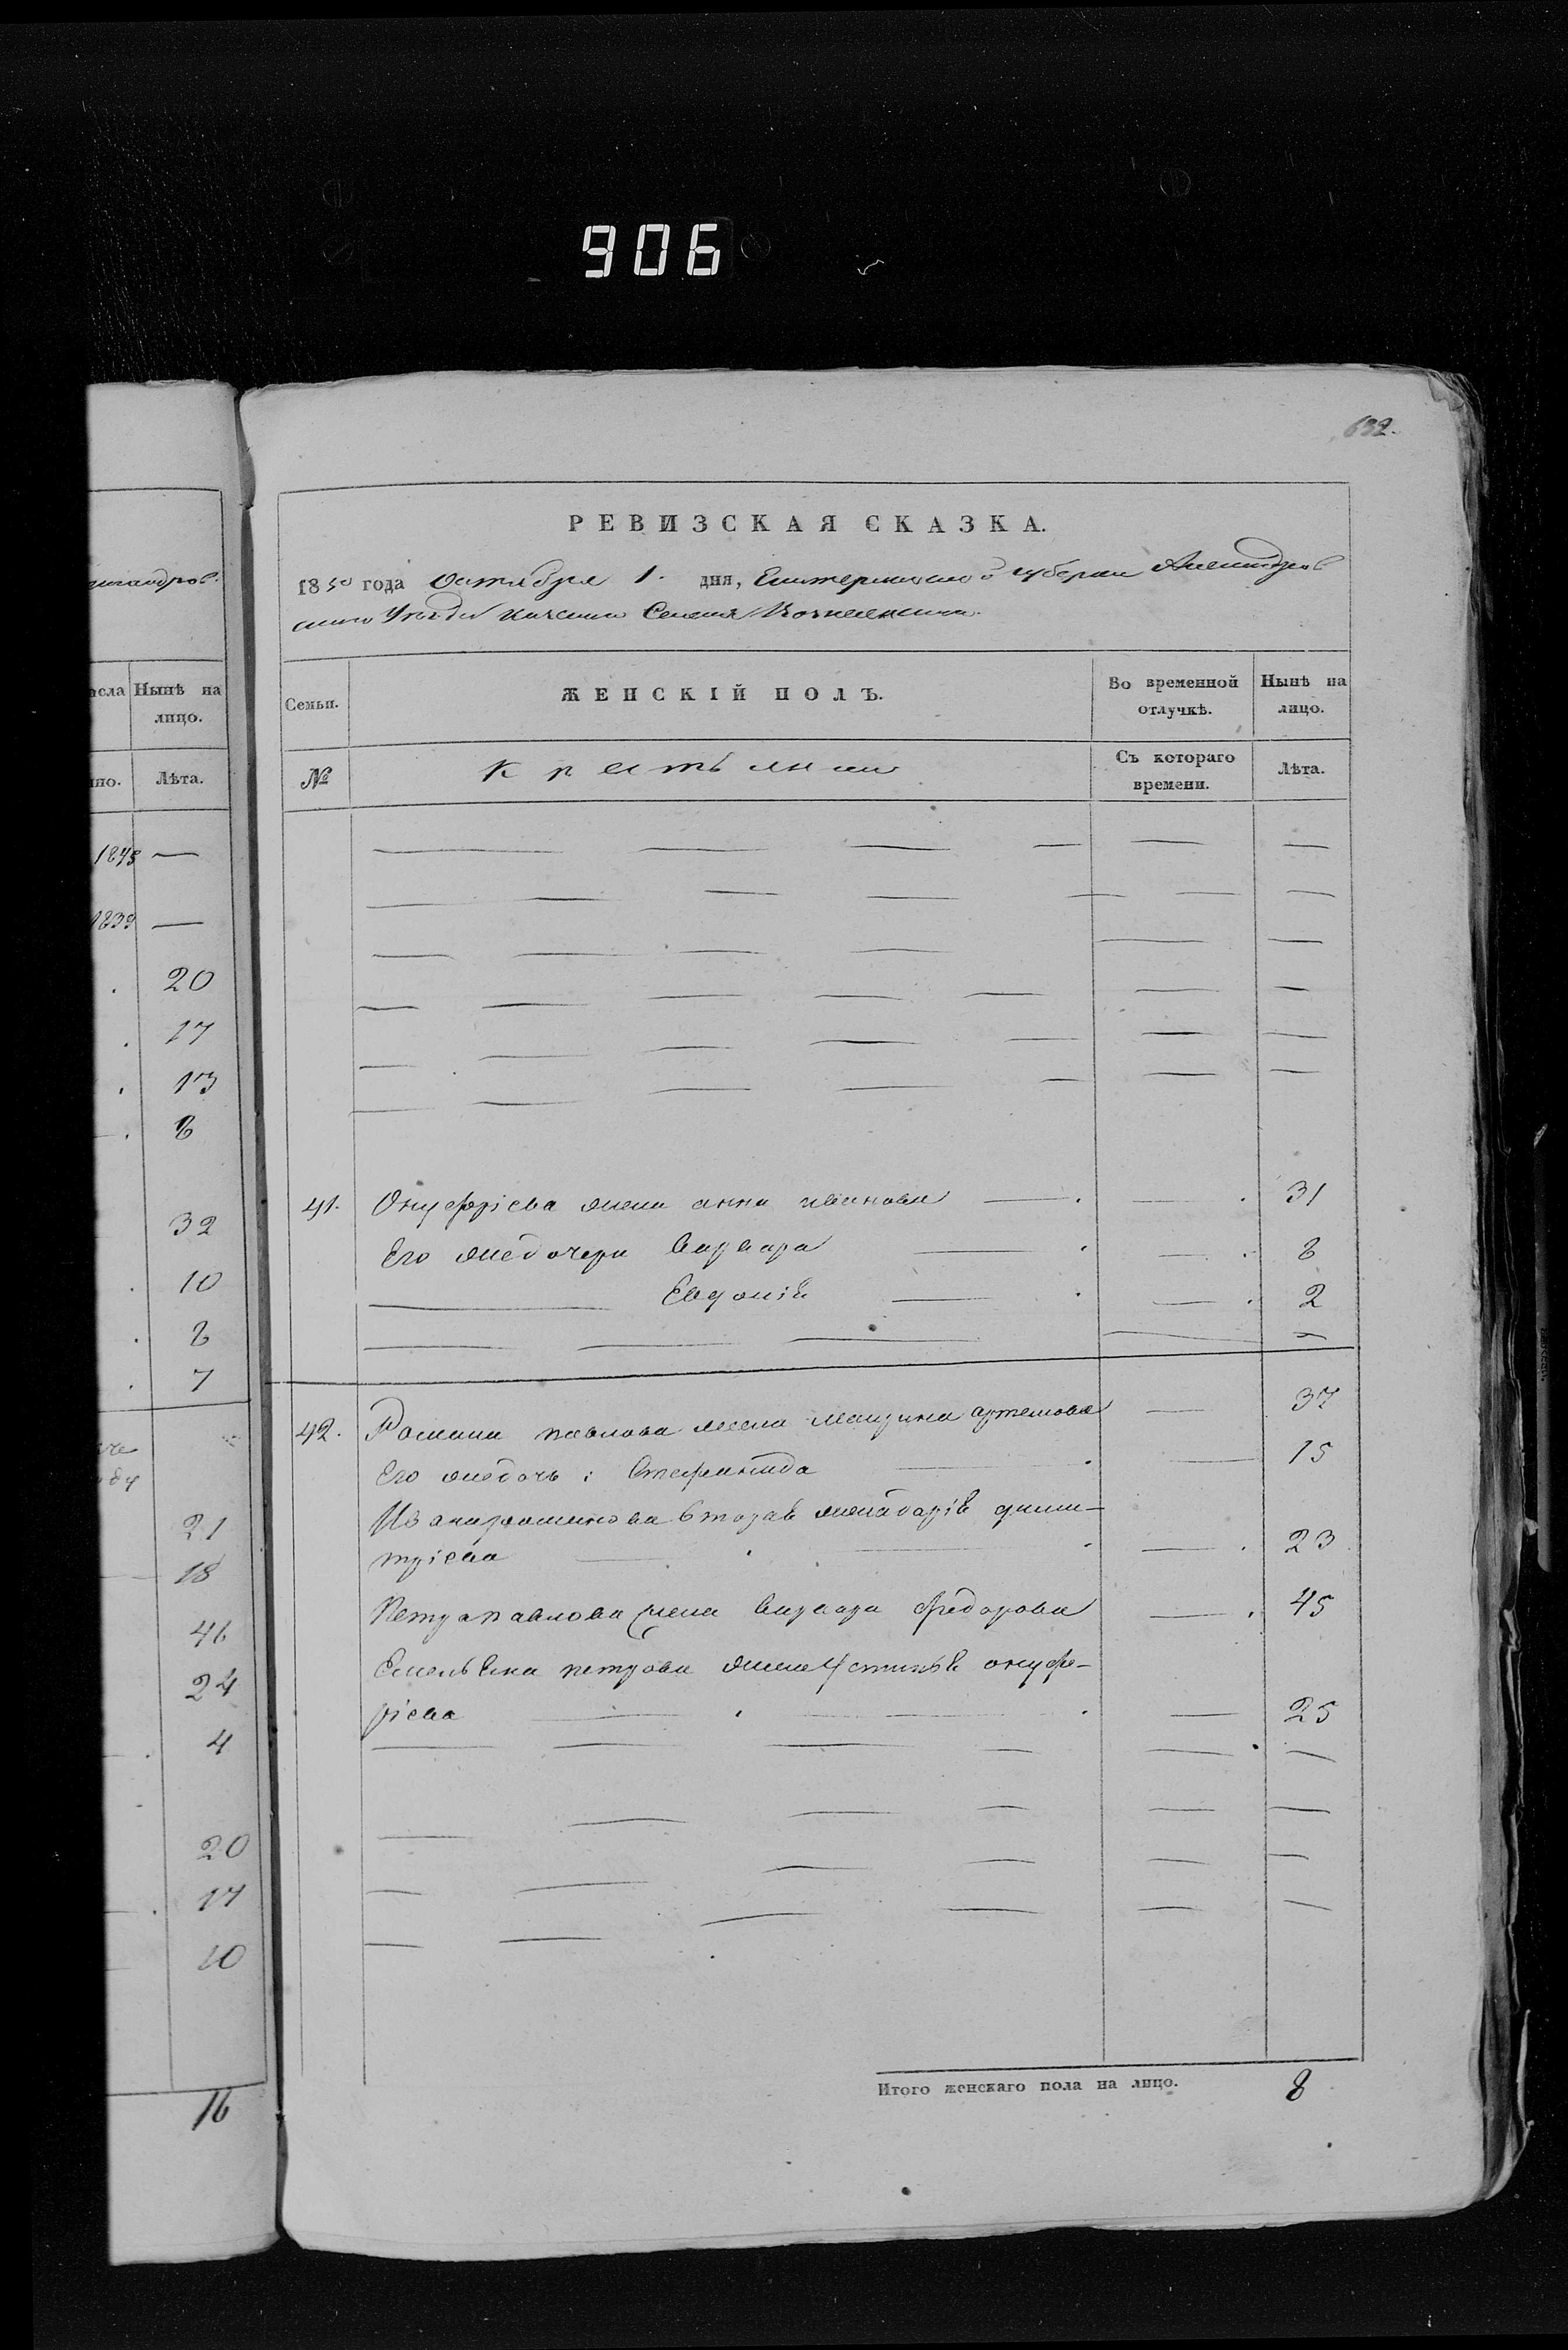 906
632.
РЕВИЗСКАЯ СКАЗКА.
1850 года Октября 1. дня, Екатеринославской губернии Александров
скаго Уезда казенно Селения Вознесенки
Семьи.
ЖЕНСКІЙ ПОЛЪ.
Во временной отлучкѣ.
Нынѣ на лицо.
№
Крестьянки
Съ котораго времени.
Лѣта.
41. Онуфріева жена анна иванова 31
Его же дочери Варвара 8
Евдокія 2
42. Романа павлова жена артемова 37
Его же дочь: Степанида 15
Ивана втораго жена дарія дими-
тріева 23
Петра павлова жена Варвара Федорова 45
Емельяна петрова жена Устинья онуф-
ріева 25
Итого женскаго пола на лицо. 8
андров
Нынѣ на лицо.
Лѣта.
1845 —
1839 —
20
17
13
8
32
10
8
7
21
18
46
24
4
20
17
10
16